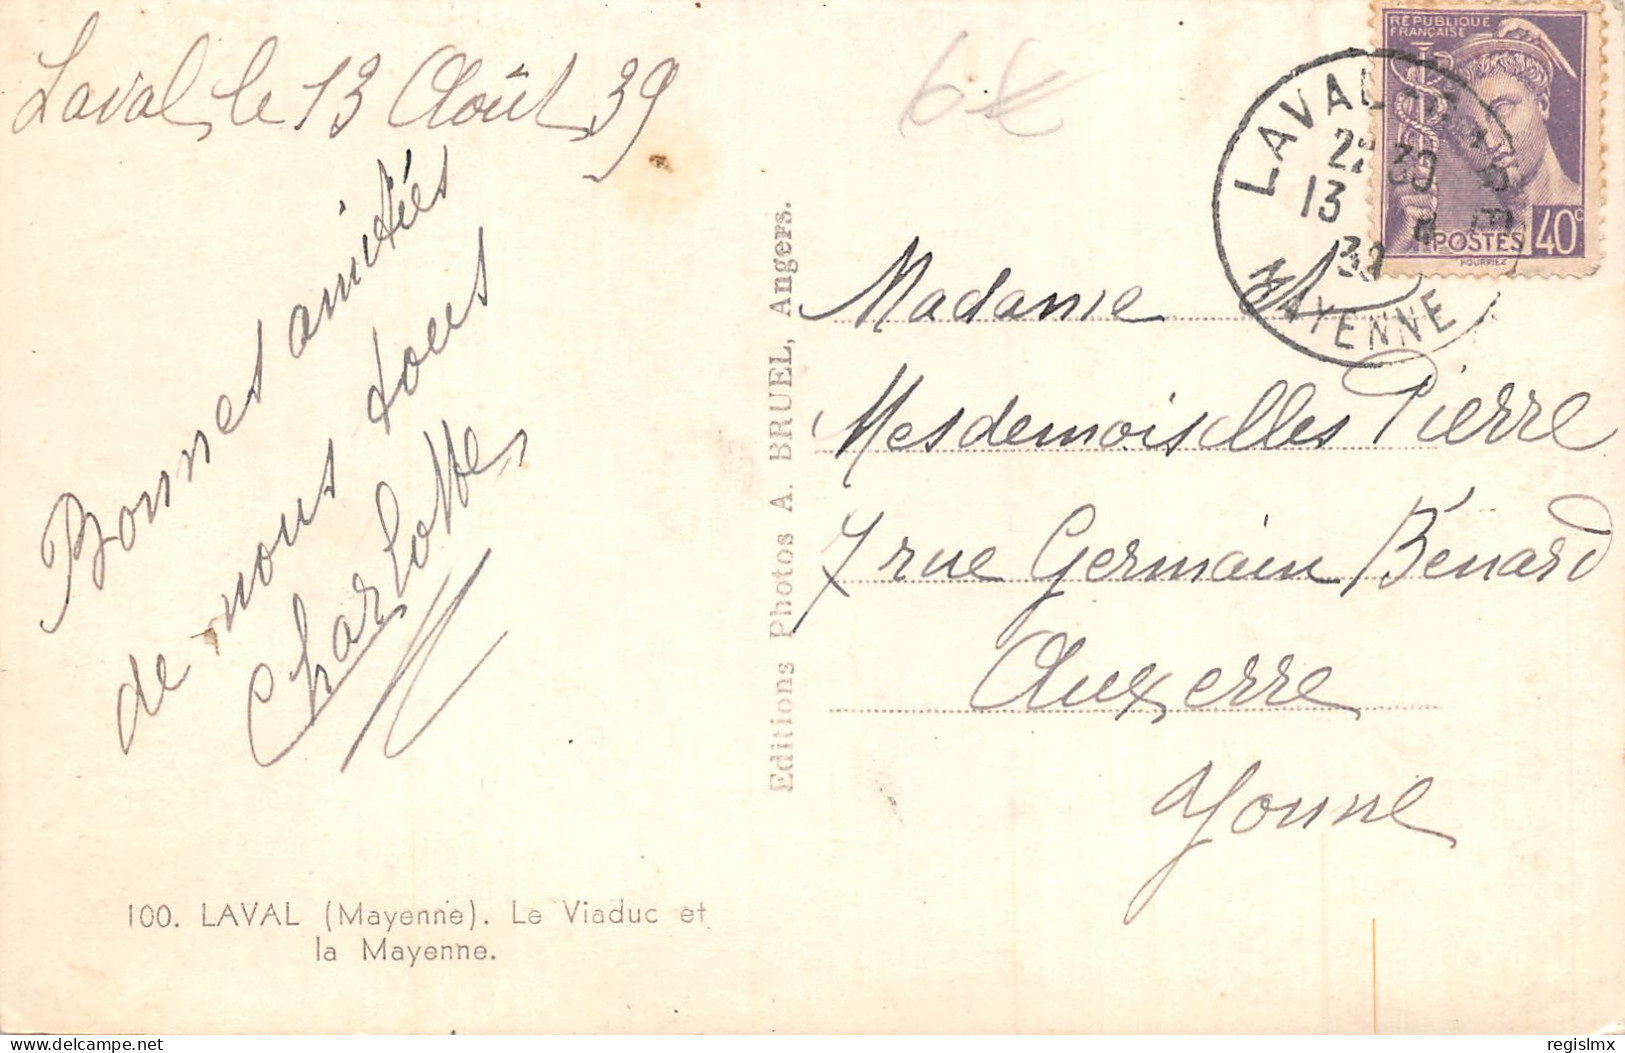 Laval, le 13 Août 39
Bonnes amitiés
de nous tous
Charlotte
100. LAVAL (Mayenne). Le Viaduc et
la Mayenne.
Editions Photos A. BRUEL, Angers.
6€
RÉPUBLIQUE
FRANÇAISE
POSTES 40c
HOURRIEZ
LAVAL
22 30
13 8
39
MAYENNE
Madame
Mesdemoiselles Pierre
7 rue Germain Bénard
Auxerre
Yonne
delcampe.net
regislmx